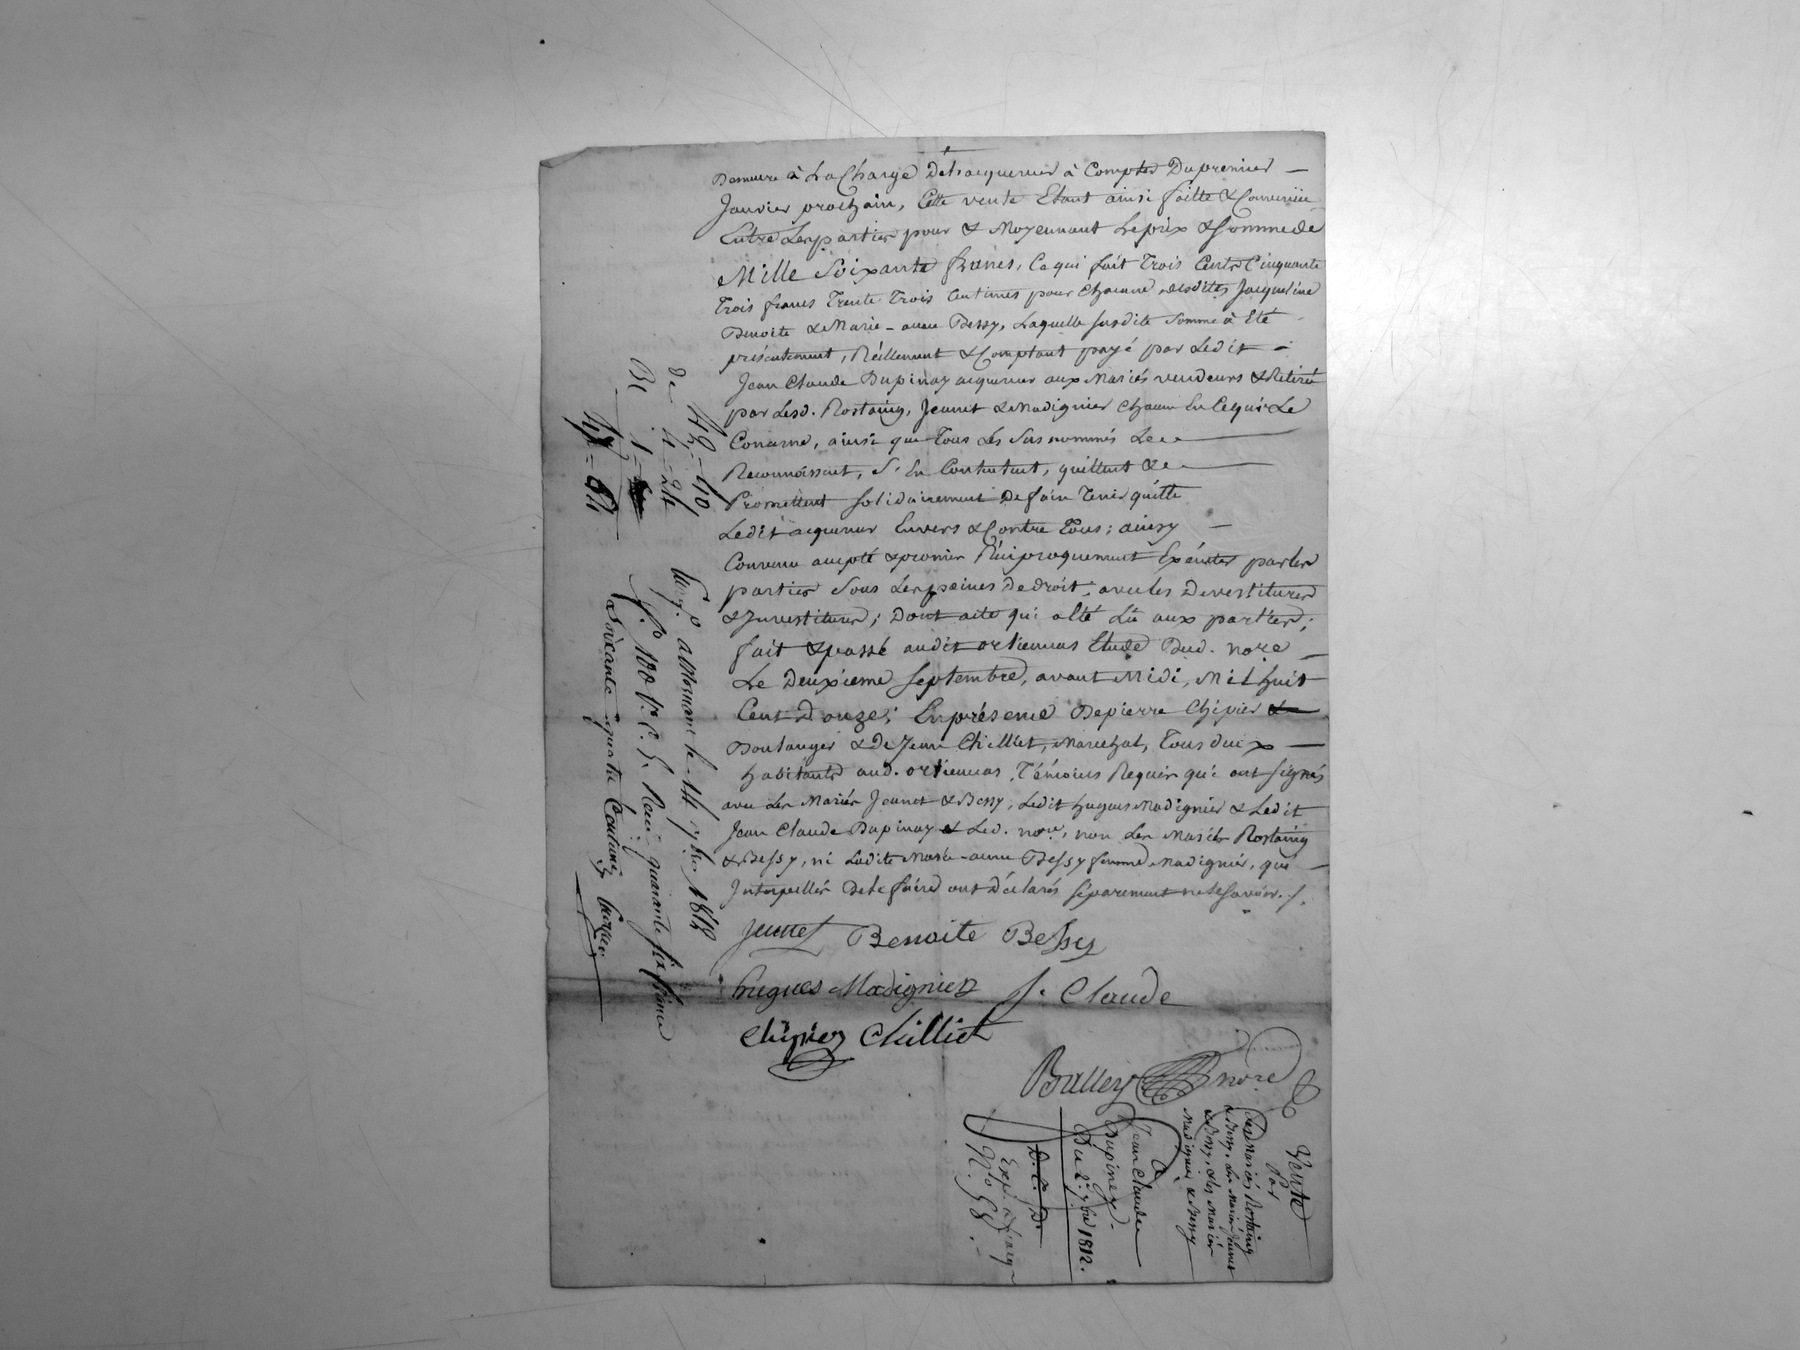 Demeure à La Charge Del'acquereur à Compter Dupremier —
Janvier prochain, Cette vente Etant ainsi faitte & Convenüe
Entre Lesparties pour & Moyennant Leprix & Sommede
Mille Soixante francs, Ce qui fait Trois Cents Cinquante
Trois francs Trente Trois Centimes pour Chacune desdites Jacqueline
Benoite & Marie-anne Bessy, Laquelle susdite Somme à Eté
présentement, Réellement & Comptant payé par Ledit —
Jean Claude Dupinay acquereur aux Mariés vendeurs & Retiré
par Lesd. Rostaing, Jeunet & Madignier Chacun En Cequi Le
Concerne, ainsi que Tous Les Susnommés Le
Reconnoissent, S'En Contentent, quittent &
Promettent solidairement De fair Tenir quitte
Ledit acquereur Envers & Contre Tous; ainsy —
Convenu accepté & promis Réciproquement Exécuter parles
parties Sous Lespeines Dedroit, avecles Devestitures
& Investitures; Dont acte qui a Eté Lu aux parties;
fait & passé audit orliennas Etude Dud. no.re —
Le Deuxieme Septembre, avant Midi, Mil huit
Cent Douze; Enprésence Depierre Chipier
Boulanger & De Jean Chilliet, Marechal, Tous deux —
habitants aud. orliennas, Témoins Requis qui ont signés
avec Les Mariés Jeunet & Bessy, Ledit hugues Madignier & Ledit
Jean Claude Dupinay & Led. no.re, non Les Mariés Rostaing
& Bessy, ni Ladite Marie-anne Bessy femme Madignier, qui —
Interpellés De Le faire ont Déclarés séparement nele savoir ./.
Jeunet Benoite Bessy
hugues Madignier J. Claude
Chipier Chilliet
Balley no.re
Vente
Par
Les Mariés Rostaing
& Bessy, Les Mariés Jeunet
& Bessy, & Les Mariés
Madignier & Bessy
à
Jean Claude
Dupinay
Du 2. 7.bre 1812.
N.to 58.
à Mornant le 14 7bre 1812
f.o 100 V.o C. 5. Reçu quarante six francs
Soixante quatre Centimes